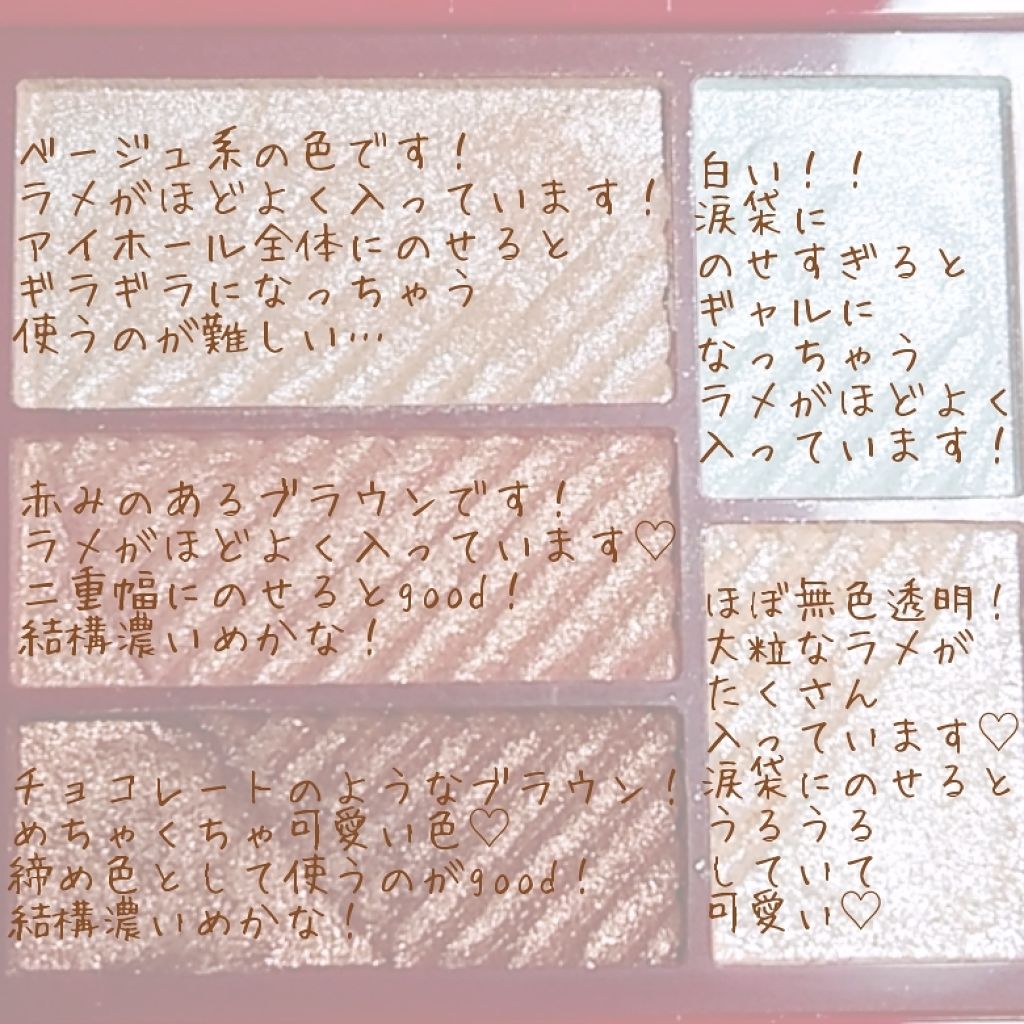 ベージュ系の色です！
ラメがほどよく入っています！
アイホール全体にのせると
ギラギラになっちゃう
使うのが難しい…
白い！！
涙袋に
のせすぎると
ギャルに
なっちゃう
ラメがほどよく
入っています！
赤みのあるブラウンです！
ラメがほどよく入っています♡
二重幅にのせるとgood！
結構濃いめかな！
ほぼ無色透明！
大粒なラメが
たくさん
入っています♡
涙袋にのせると
うるうる
していて
可愛い♡
チョコレートのようなブラウン！
めちゃくちゃ可愛い色♡
締め色として使うのがgood！
結構濃いめかな！